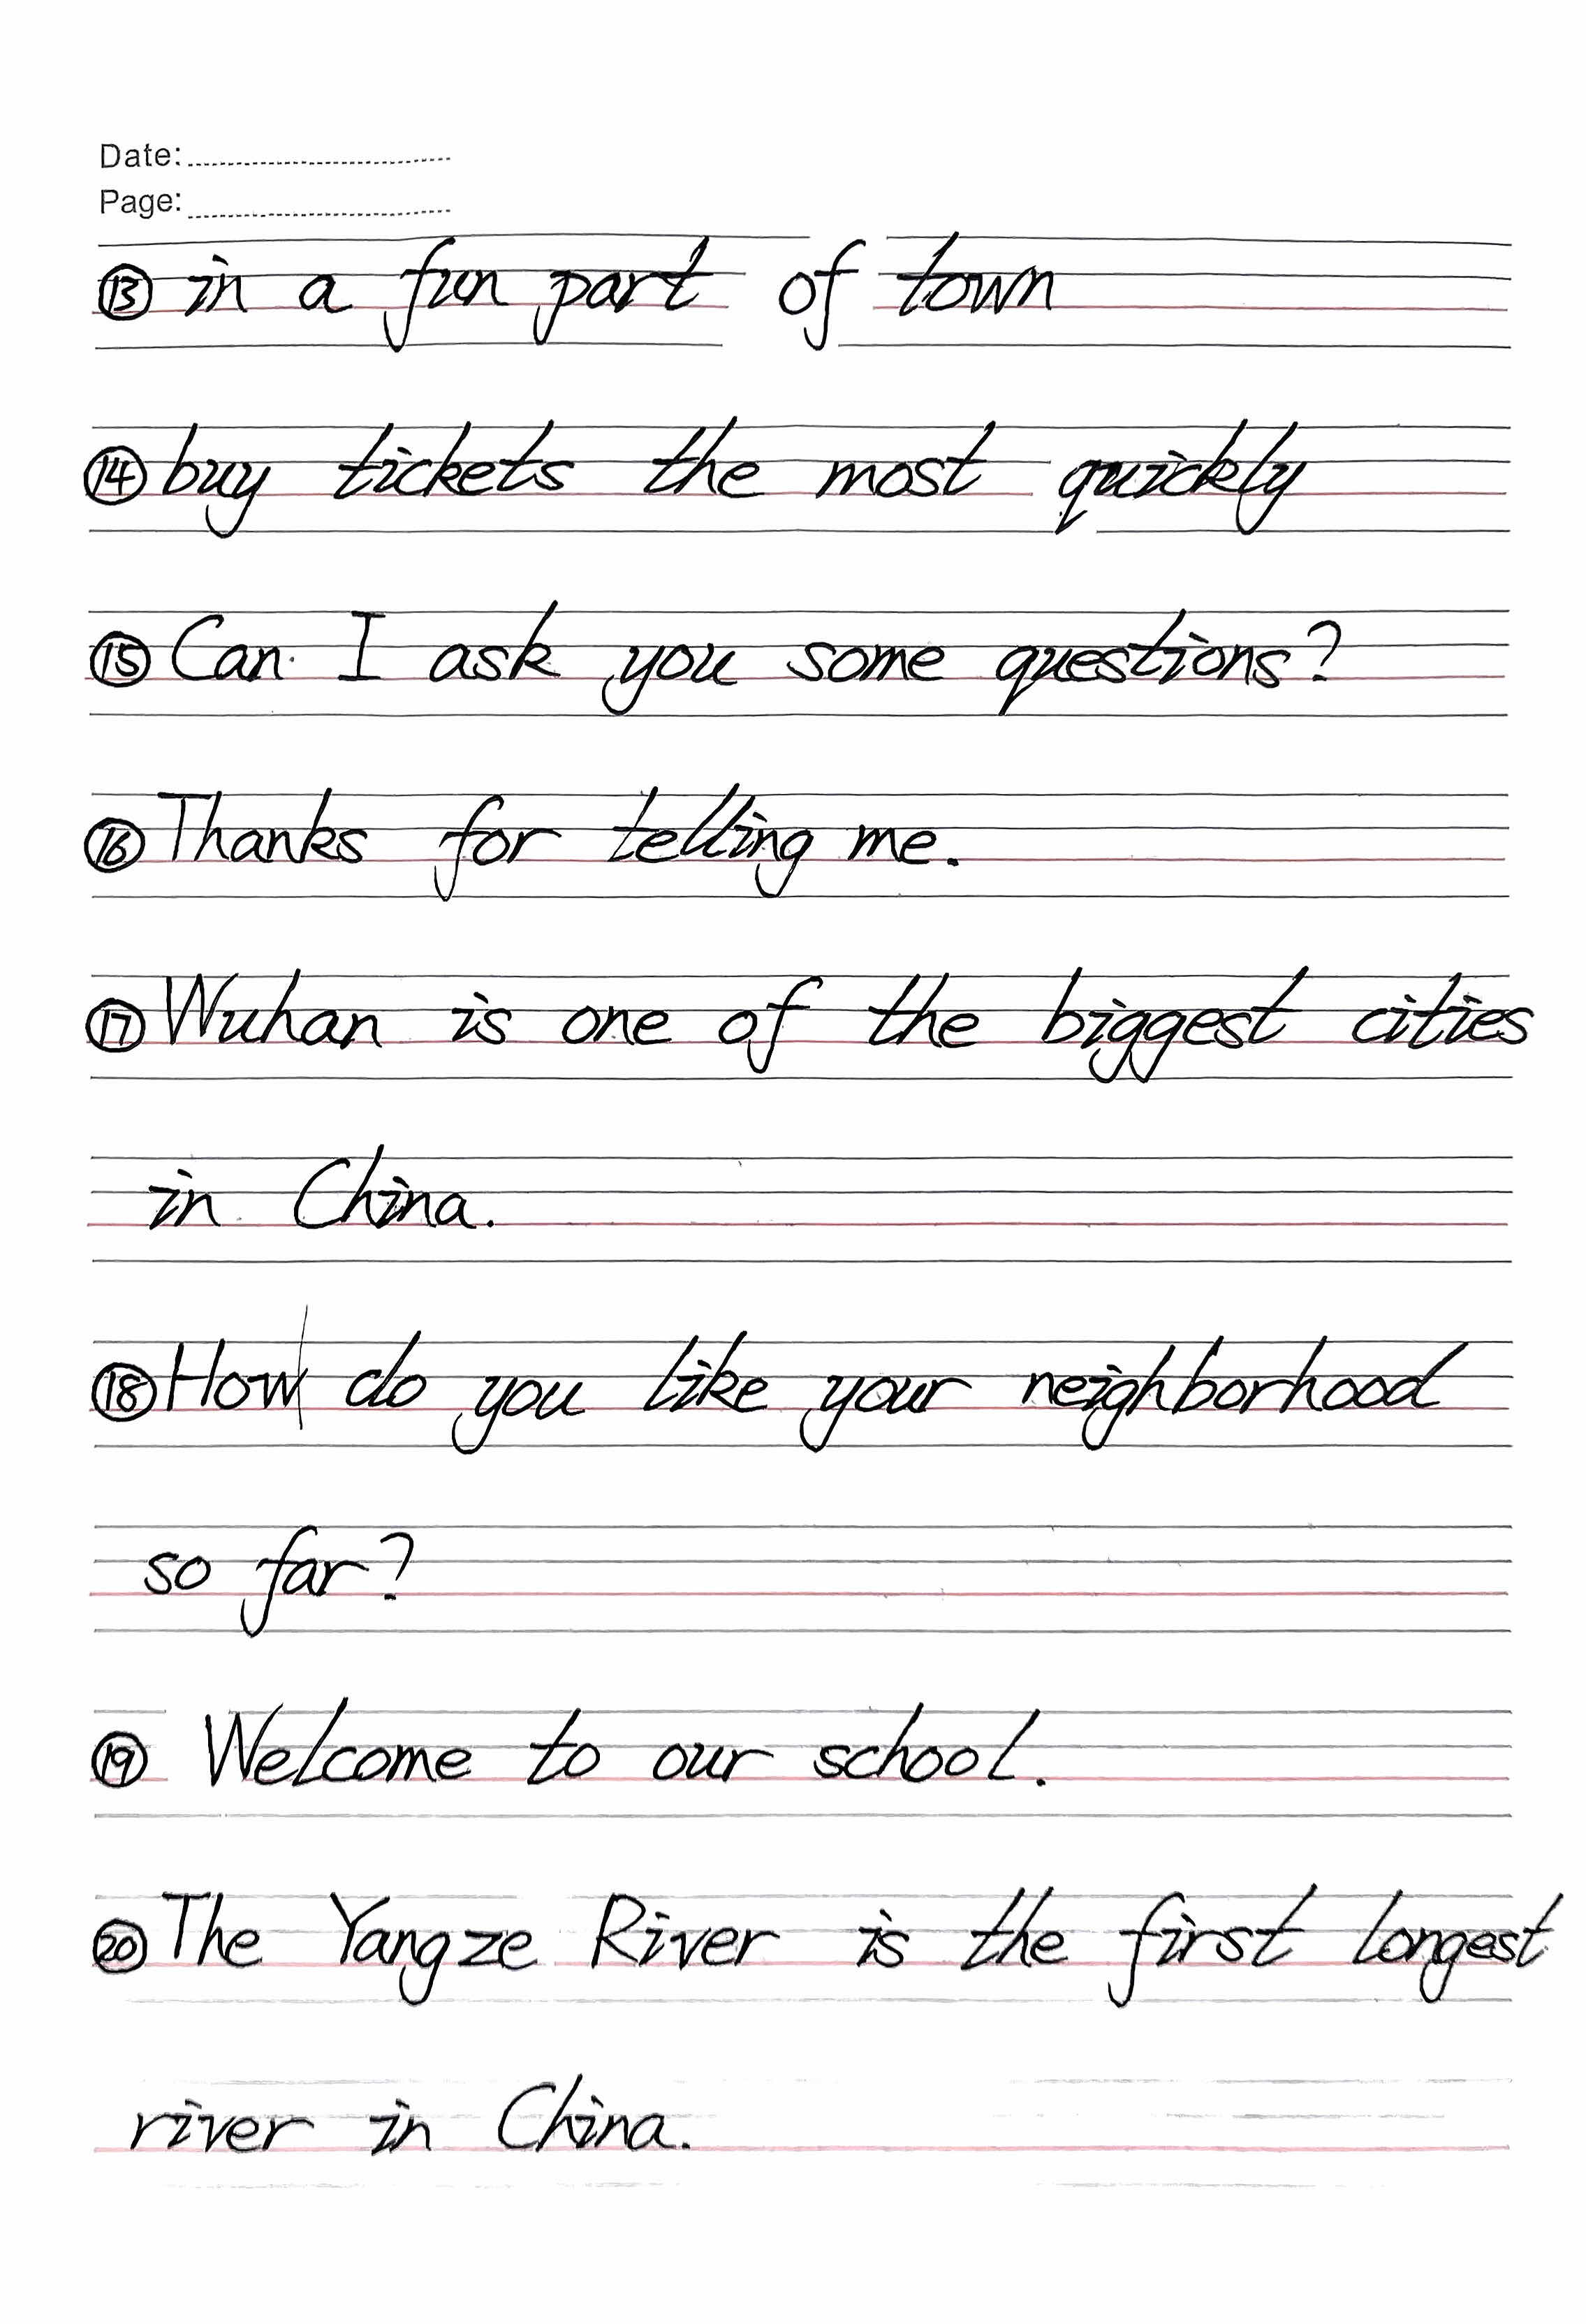 Date:
Page:
⑬ in a fun part of town
⑭ buy tickets the most quickly
⑮ Can I ask you some questions?
⑯ Thanks for telling me.
⑰ Wuhan is one of the biggest cities
in China.
⑱ How do you like your neighborhood
so far?
⑲ Welcome to our school.
⑳ The Yangze River is the first longest
river in China.